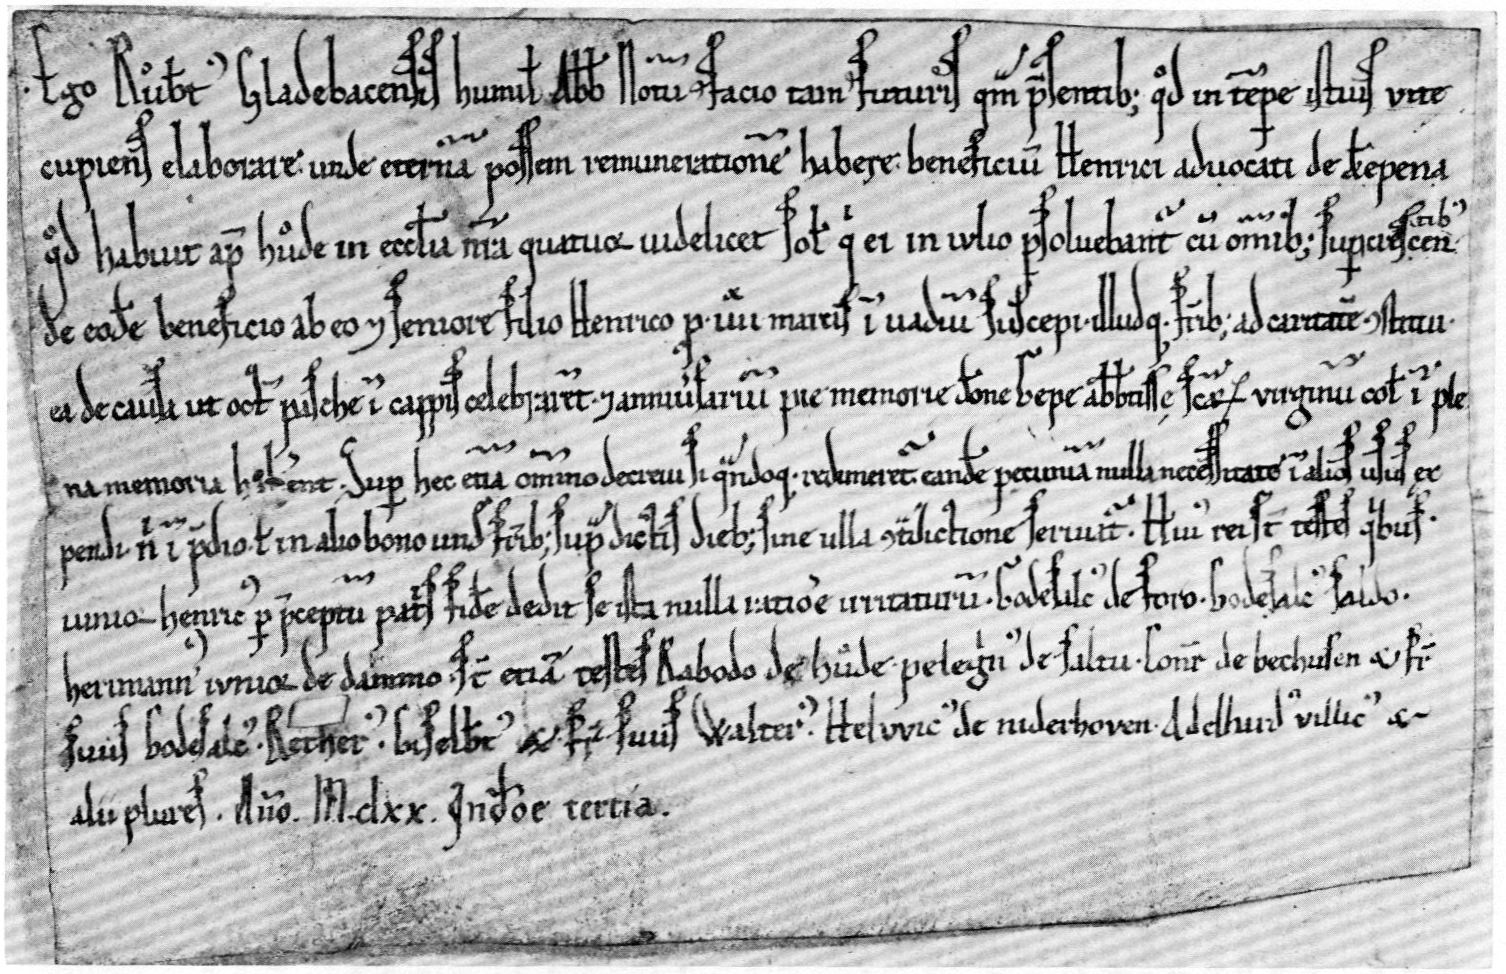 Ego Růbt' Gladebacensis humil Abb Notū facio tam futuris qm p̄sentib; qd in tēpe istius vite
cupiens elaborare unde eternā possem remunerationē habere beneficiū Henrici advocati de depena
qd habuit ap hůde in ecclia nr̄a quatuor uidelicet sol q̇ ei in iulio psoluebant cū omib; supcrescentib'
de eodē beneficio ab eo ⁊ seniore filio Henrico p · uiii marcis ī uadiū suscepi · illudq · frīb; ad caritatē ↄstitui ·
ea de causa ut oct pasche ī cappis celebraret · ⁊ anniūsariū pie memorie dōne Gepe abbtisse scar virginū col ī ple
na memoria habent · Sup hec etiā omīno decreui si qndoq · redimeret eandē pecuniā nulla necessitate ī alios usus ex
pendi · n ī p̄dio · t in alio bono und frīb; sup̄dictis dieb; sine ulla ↄtdictione seruiat · Hui' rei st testes qibus ·
iunior henric' p p̄ceptū patis fidē dedit se ista nulla ratiōe irritaturū · Godesalc' de foro · Godesalc' saldo ·
herimann' iunior de dammo · st etiā testes Rabodo de hůde · pelegin' de saltu · Conr de bechusen & fr
suus Godesalc' · Rether' · Giselbt' & fr suus Walter' · Heluuic' de niderhoven · Adelhard' villic' &
alii plures · Anno · M · clxx · Indōe tertia ·